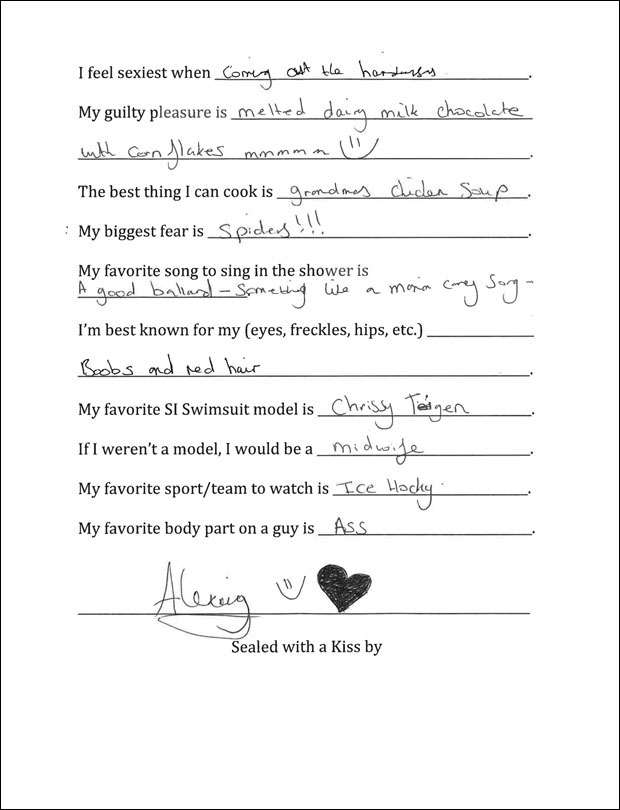 I feel sexiest when Coming out the hairdressers.
My guilty pleasure is melted dairy milk chocolate
with corn flakes mmmmm.
The best thing I can cook is grandmas chicken soup.
: My biggest fear is Spiders!!!.
My favorite song to sing in the shower is
A good ballard – Something like a maria carey song –
I’m best known for my (eyes, freckles, hips, etc.)
Boobs and red hair.
My favorite SI Swimsuit model is Chrissy Teigen.
If I weren’t a model, I would be a midwife.
My favorite sport/team to watch is Ice Hocky.
My favorite body part on a guy is Ass.
Sealed with a Kiss by